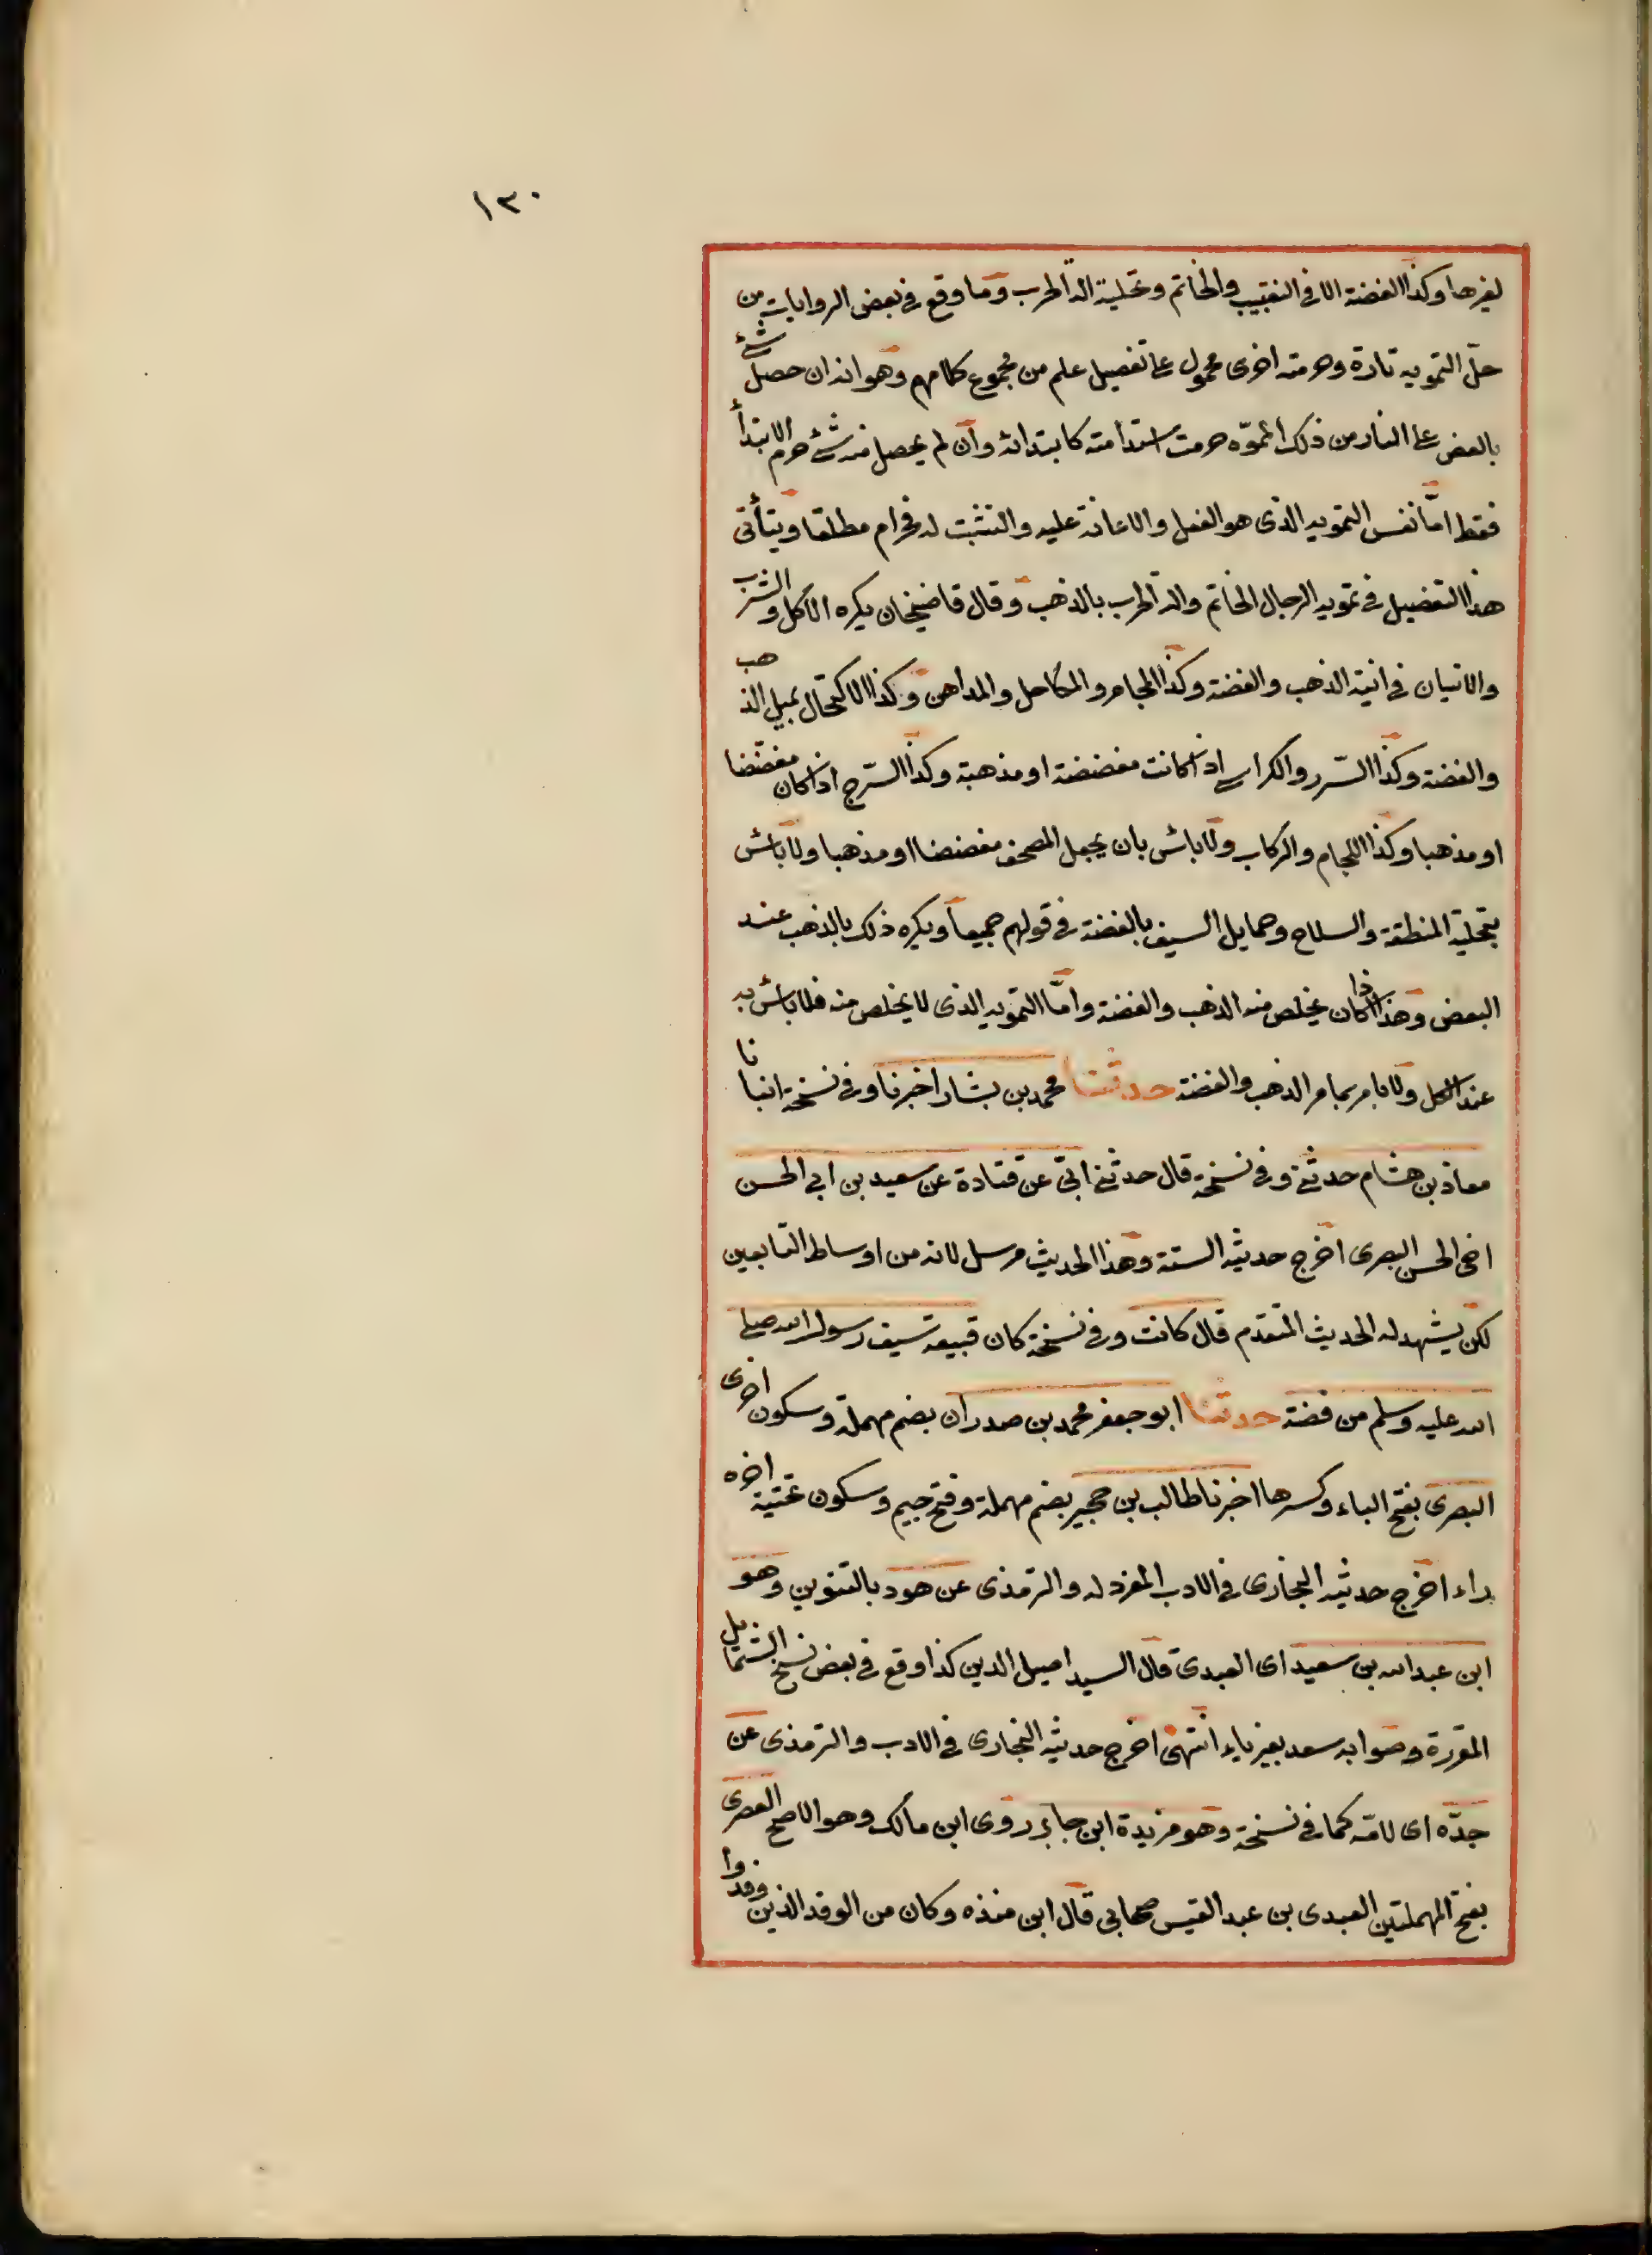 ١٣٠
لغيرها وكذا الفضة الا في التقبيب والخاتم وتحلية الة الحرب وما وقع في بعض الروايات من
حلّ التمويه تارة وحرمته اخرى محمول على تفصيل علم من مجموع كلامهم وهو انه ان حصل شئ
بالعرض على النار من ذلك المموّه حرمت استدامته كابتدائه وان لم يحصل منه شئ حرم الابتدأ
فقط امّا نفس التمويه الذى هو الفعل والاعانة عليه والتثبت له فحرام مطلقا ويتأتى
هذا التفصيل في تمويه الرجال الخاتم والة الحرب بالذهب وقال قاضيخان يكره الاكل والشرب
والاتيان في انية الذهب والفضة وكذا المجامر والمكاحل والمداهن وكذا الاكتحال بميل الذهب
والفضة وكذا السّرر والكراسى اذا كانت مفضضة او مذهبة وكذا السّرج اذا كان مفضّضا
او مذهبا وكذا اللجام والركاب ولا باس بان يجعل المصحف مفضضا او مذهبا ولا باس
بتحلية المنطقة والسلاح وحمايل السيف بالفضة في قولهم جميعا ويكره ذلك بالذهب عند
البعض وهذا اذا كان يخلص منه الذهب والفضة وامّا التمويه الذى لا يخلص منه فلا باس به
عند الكل ولا بامر بمامر الذهب والفضة حدثنا محمد بن بشار اخبرنا وفي نسخة انبانا
معاذ بن هشام حدثنى وفي نسخة قال حدثنى ابى عن قتادة عن سعيد بن ابى الحسن
اخى الحسن البصرى اخرج حديثه الستة وهذا الحديث مرسل لانه من اوساط التابعين
لكن يشهد له الحديث المتقدم قال كانت وفي نسخة كان قبيعة سيف رسول الله صلى
الله عليه وسلم من فضة حدثنا ابو جعفر محمد بن صدران بضم مهملة وسكون اخرى
البصرى بفتح الباء وكسرها اخبرنا طالب بن حجير بضم مهملة وفتح جيم وسكون تحتية اخره
راء اخرج حديثه البخارى في الادب المفرد له والترمذى عن هود بالتنوين وهو
ابن عبد الله بن سعيد اى العبدى قال السيد اصيل الدين كذا وقع في بعض نسخ الشمايل
المقررة وصوابه سعد بغير ياء انتهى اخرج حديثه البخارى في الادب والترمذى عن
جدّه اى لامّه كما في نسخة وهو مزيدة ابن جابر روى ابن مالك وهو الاصح العصرى
بفتح المهملتين العبدى بن عبد القيس صحابى قال ابن منذه وكان من الوفد الذين وفدوا